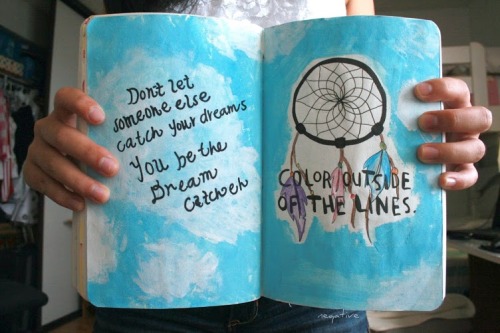 Don't let
someone else
catch your dreams
You be the
Dream
catcher
COLOR OUTSIDE
OF THE LINES.
negative